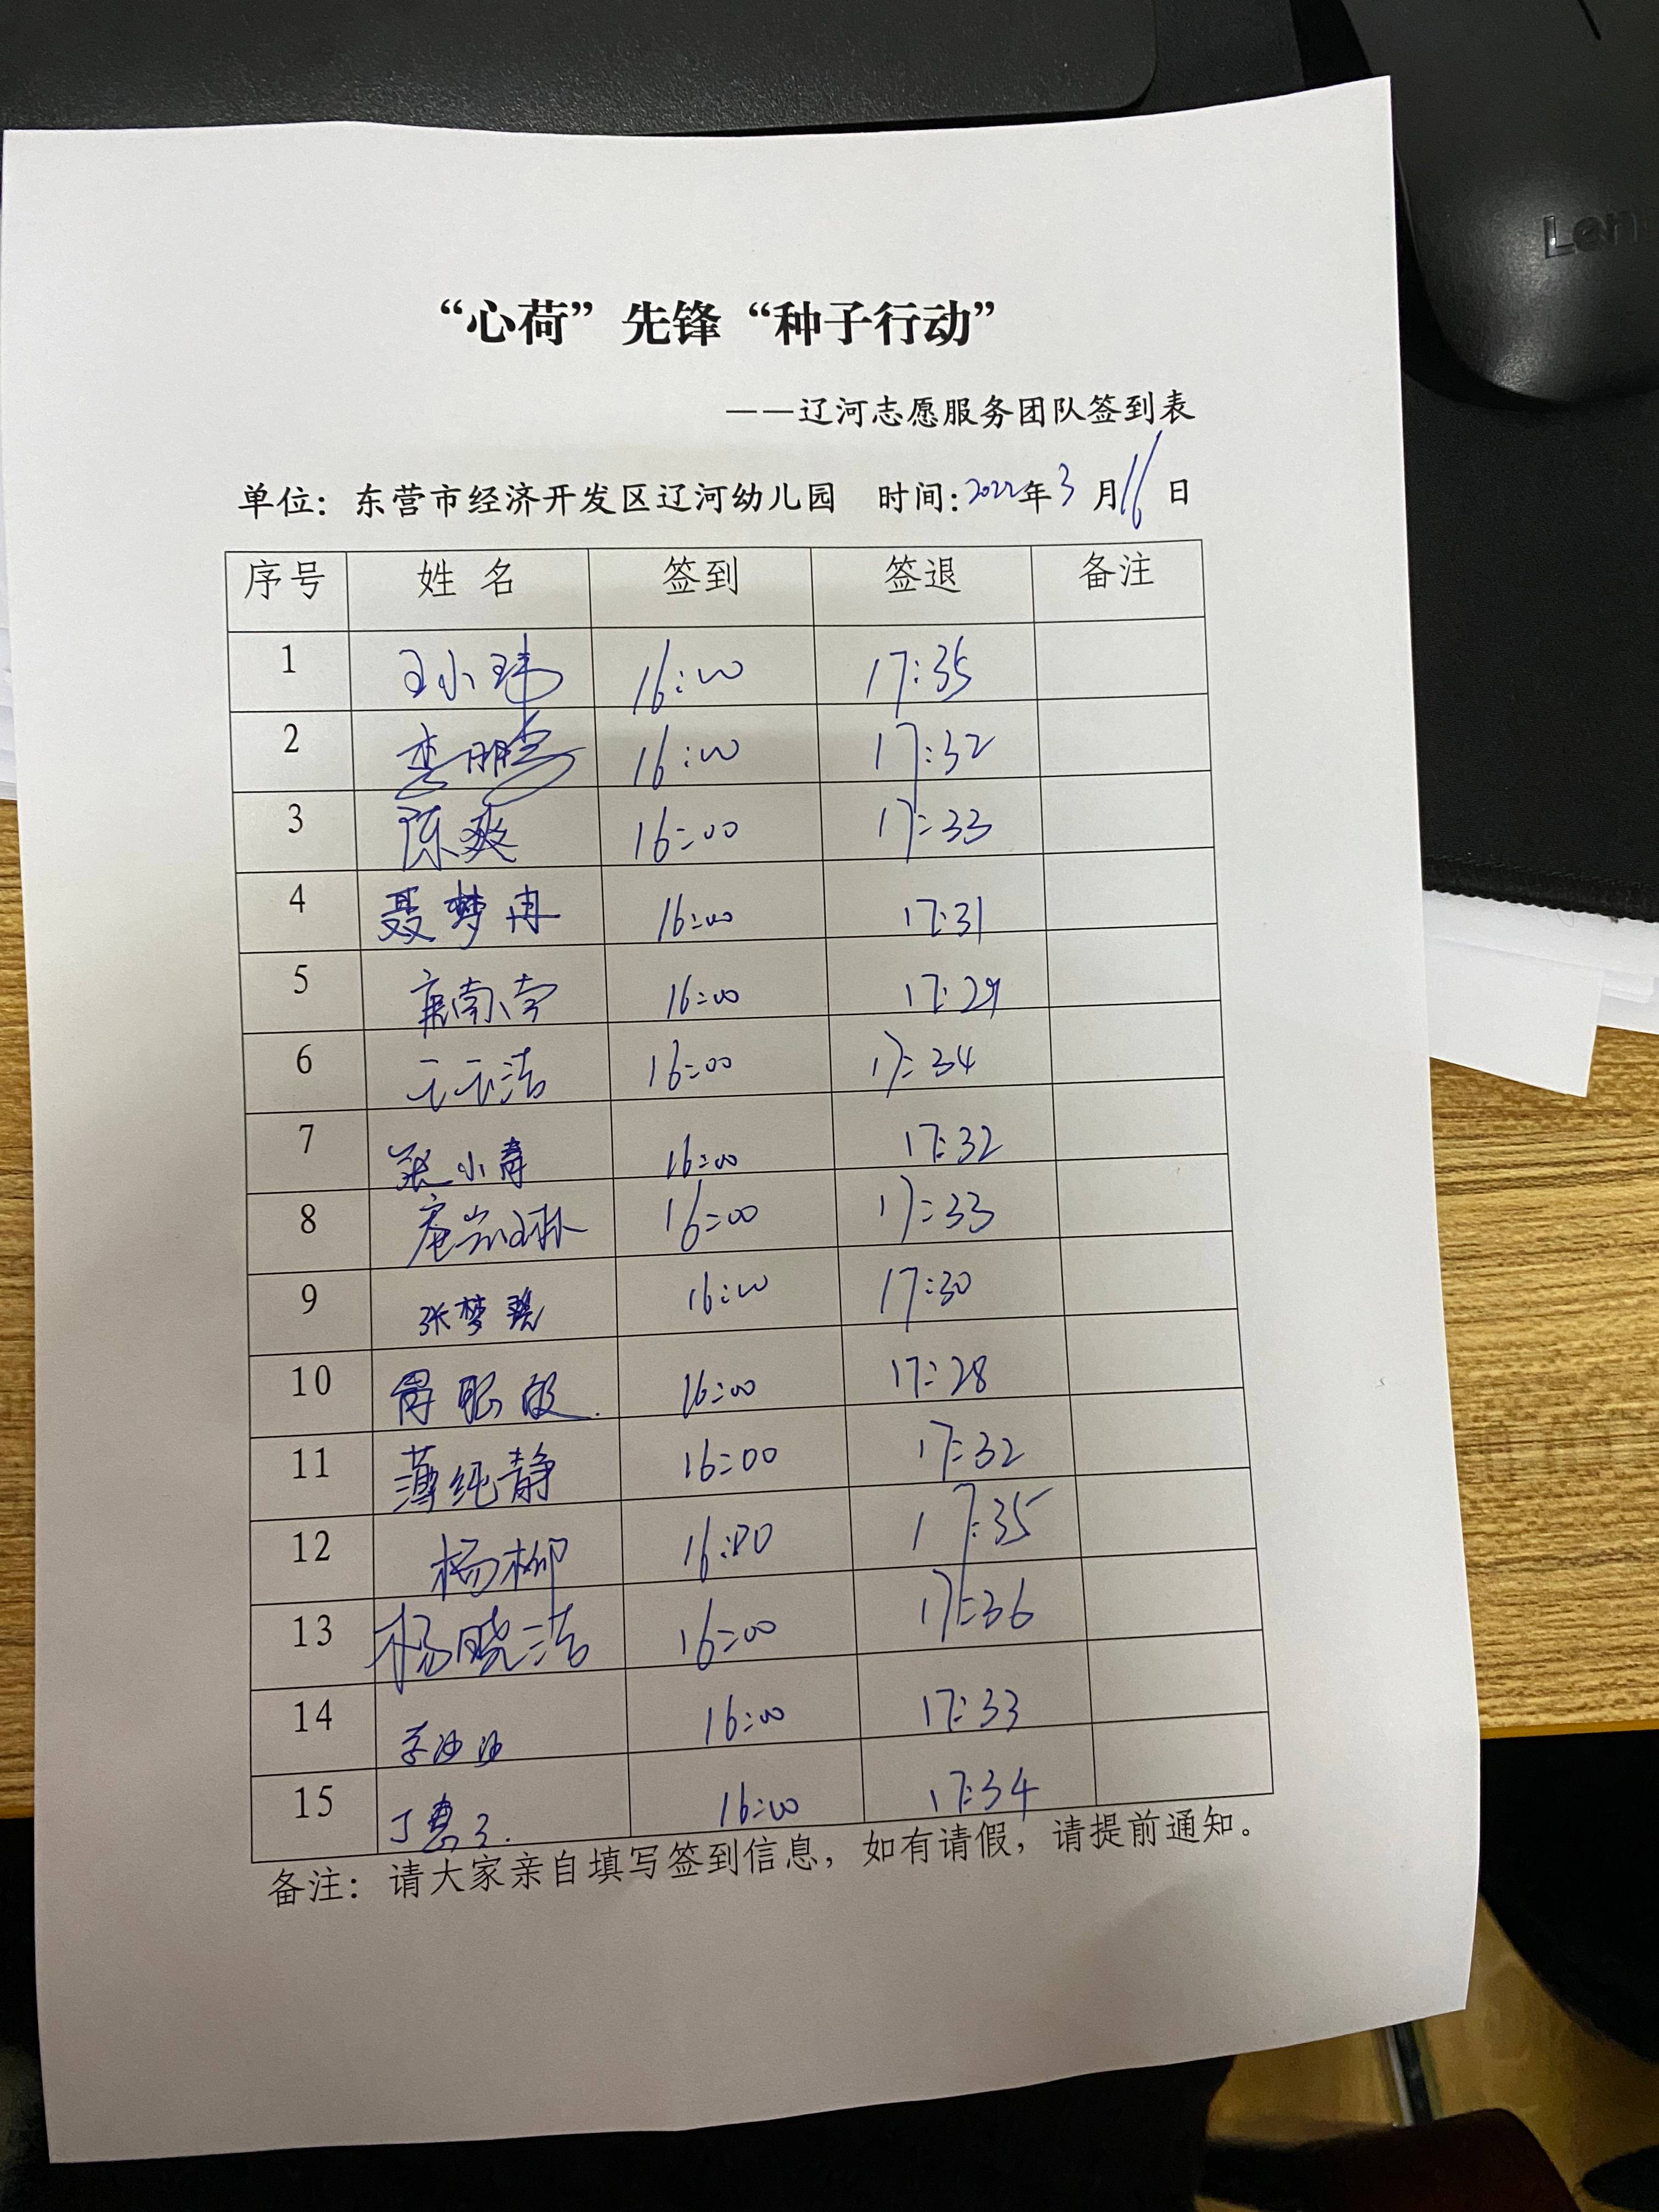 Len
“心荷”先锋“种子行动”
——辽河志愿服务团队签到表
单位：东营市经济开发区辽河幼儿园 时间：2022年3月16日
序号 姓名 签到 签退 备注
1 王小玮 16:00 17:35
2 李鹏 16:00 17:32
3 陈爽 16:00 17:33
4 聂梦冉 16:00 17:31
5 南南 16:00 17:29
6 王玉洁 16:00 17:34
7 张小青 16:00 17:32
8 16:00 17:33
9 张梦 16:00 17:30
10 16:00 17:28
11 薄纯静 16:00 17:32
12 杨柳 16:00 17:35
13 杨晓洁 16:00 17:36
14 李 16:00 17:33
15 丁惠子 16:00 17:34
备注：请大家亲自填写签到信息，如有请假，请提前通知。